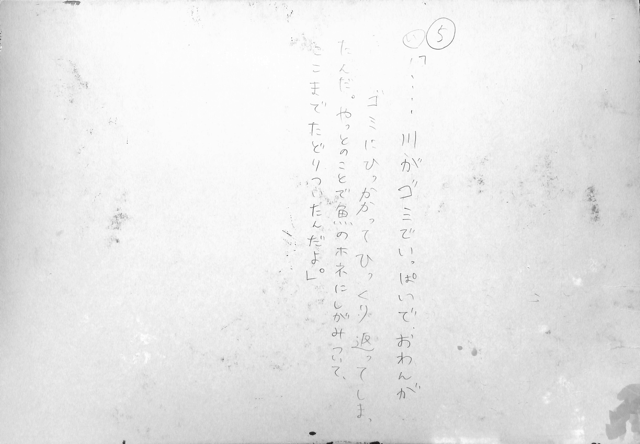 ⑤
「‥‥川がゴミでいっぱいで、おわんが
ゴミにひっかかってひっくり返ってしま、
たんだ。やっとのことで魚のホネにしがみついて、
ここまでたどりついたんだよ。」